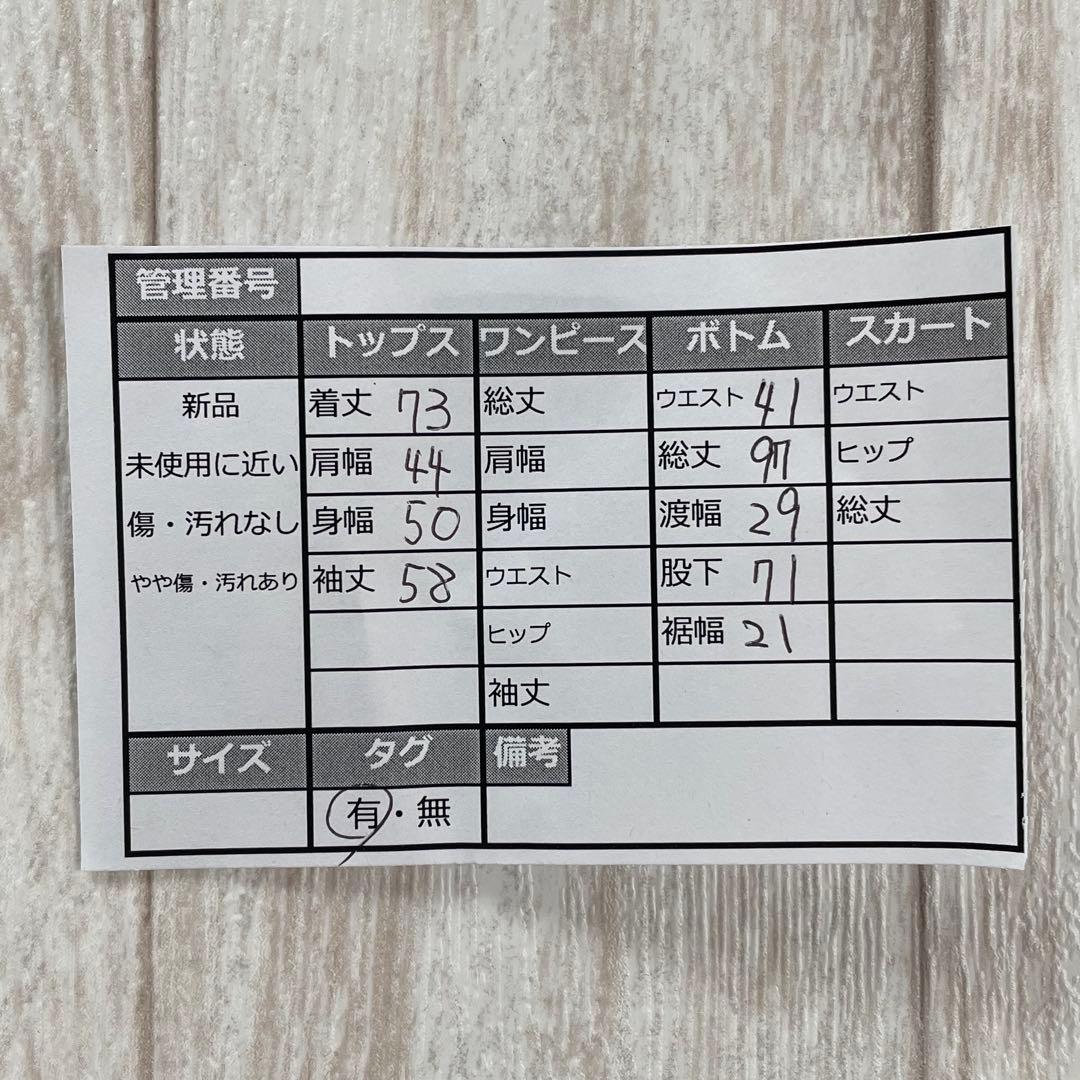 管理番号
状態 トップス ワンピース ボトム スカート
新品 着丈 73 総丈 ウエスト 41 ウエスト
未使用に近い 肩幅 44 肩幅 総丈 97 ヒップ
傷・汚れなし 身幅 50 身幅 渡幅 29 総丈
やや傷・汚れあり 袖丈 58 ウエスト 股下 71
ヒップ 裾幅 21
袖丈
サイズ タグ 備考
有・無